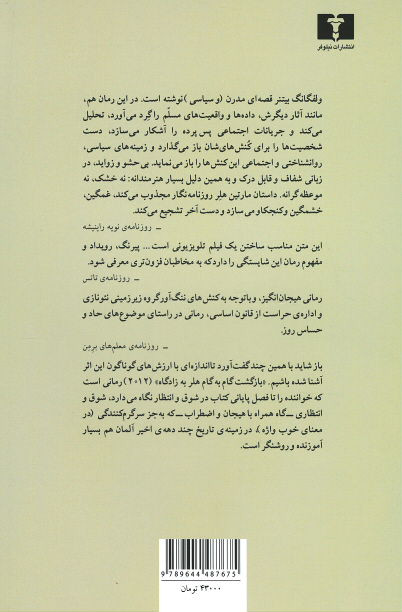 انتشارات نیلوفر
ولفگانگ بیتنر قصه‌ای مدرن (و سیاسی) نوشته است. در این رمان هم،
مانند آثار دیگرش، داده‌ها و واقعیت‌های مسلّم را گِرد می‌آورد، تحلیل
می‌کند و جریانات اجتماعی پس پرده را آشکار می‌سازد، دست
شخصیت‌ها را برای کُنش‌های‌شان باز می‌گذارد و زمینه‌های سیاسی،
روانشناختی و اجتماعی این کنش‌ها را باز می‌نماید. بی‌حشو و زواید، در
زبانی شفاف و قابل درک و به همین دلیل بسیار هنرمندانه: نه خشک، نه
موعظه‌گرانه. داستان مارتین هلِر روزنامه‌نگار مجذوب می‌کند، غمگین،
خشمگین و کنجکاو می‌سازد و دست آخر تشجیع می‌کند.
ــ روزنامه‌ی نویه راینیشه
این متن مناسب ساختن یک فیلم تلویزیونی است... پیرنگ، رویداد و
مفهوم رمان این شایستگی را دارد که به مخاطبان فزون‌تری معرفی شود.
ــ روزنامه‌ی تاتس
رمانی هیجان‌انگیز، و با توجه به کنش‌های ننگ‌آور گروه زیرزمینی نئونازی
و اداره‌ی حراست از قانون اساسی، رمانی در راستای موضوع‌های حاد و
حساس روز.
ــ روزنامه‌ی معلم‌های برمِن
باز شاید با همین چند گفت‌آورد تا اندازه‌ای با ارزش‌های گوناگون این اثر
آشنا شده باشیم. «بازگشت گام به گام هلر به زادگاه» (۲۰۱۲) رمانی است
که خواننده را تا فصل پایانی کتاب در شوق و انتظار نگاه می‌دارد، شوق و
انتظاری ــ گاه همراه با هیجان و اضطراب ــ که به جز سرگرم‌کنندگی (در
معنای خوب واژه)، در زمینه‌ی تاریخ چند دهه‌ی اخیر آلمان هم بسیار
آموزنده و روشنگر است.
9 789644 487675
۴۳۰۰۰ تومان